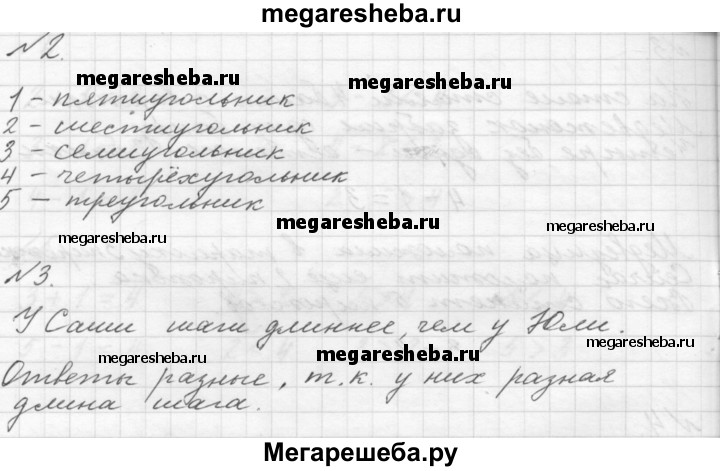 megaresheba.ru
№2.
megaresheba.ru megaresheba.ru
1 - пятиугольник
2 - шестиугольник
3 - семиугольник
4 - четырёхугольник
5 - треугольник
megaresheba.ru megaresheba.ru megaresheba.ru
№3.
У Саши шаги длиннее, чем у Юли.
megaresheba.ru megaresheba.ru megaresheba.ru
Ответы разные, т.к. у них разная
длина шага.
Мегарешеба.ру